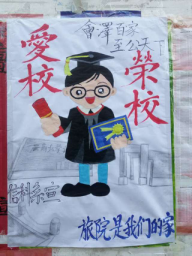 會澤百家
至公天下
愛校
榮校
旅院是我们的家